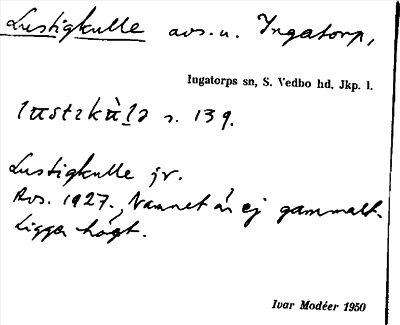 Lustigkulle avs. u. Ingatorp,
Ingatorps sn, S. Vedbo hd, Jkp. l.
s. 139.
Lustigkulle jv.
Avs. 1927. Namnet är ej gammalt.
Ligger högt.
Ivar Modéer 1950